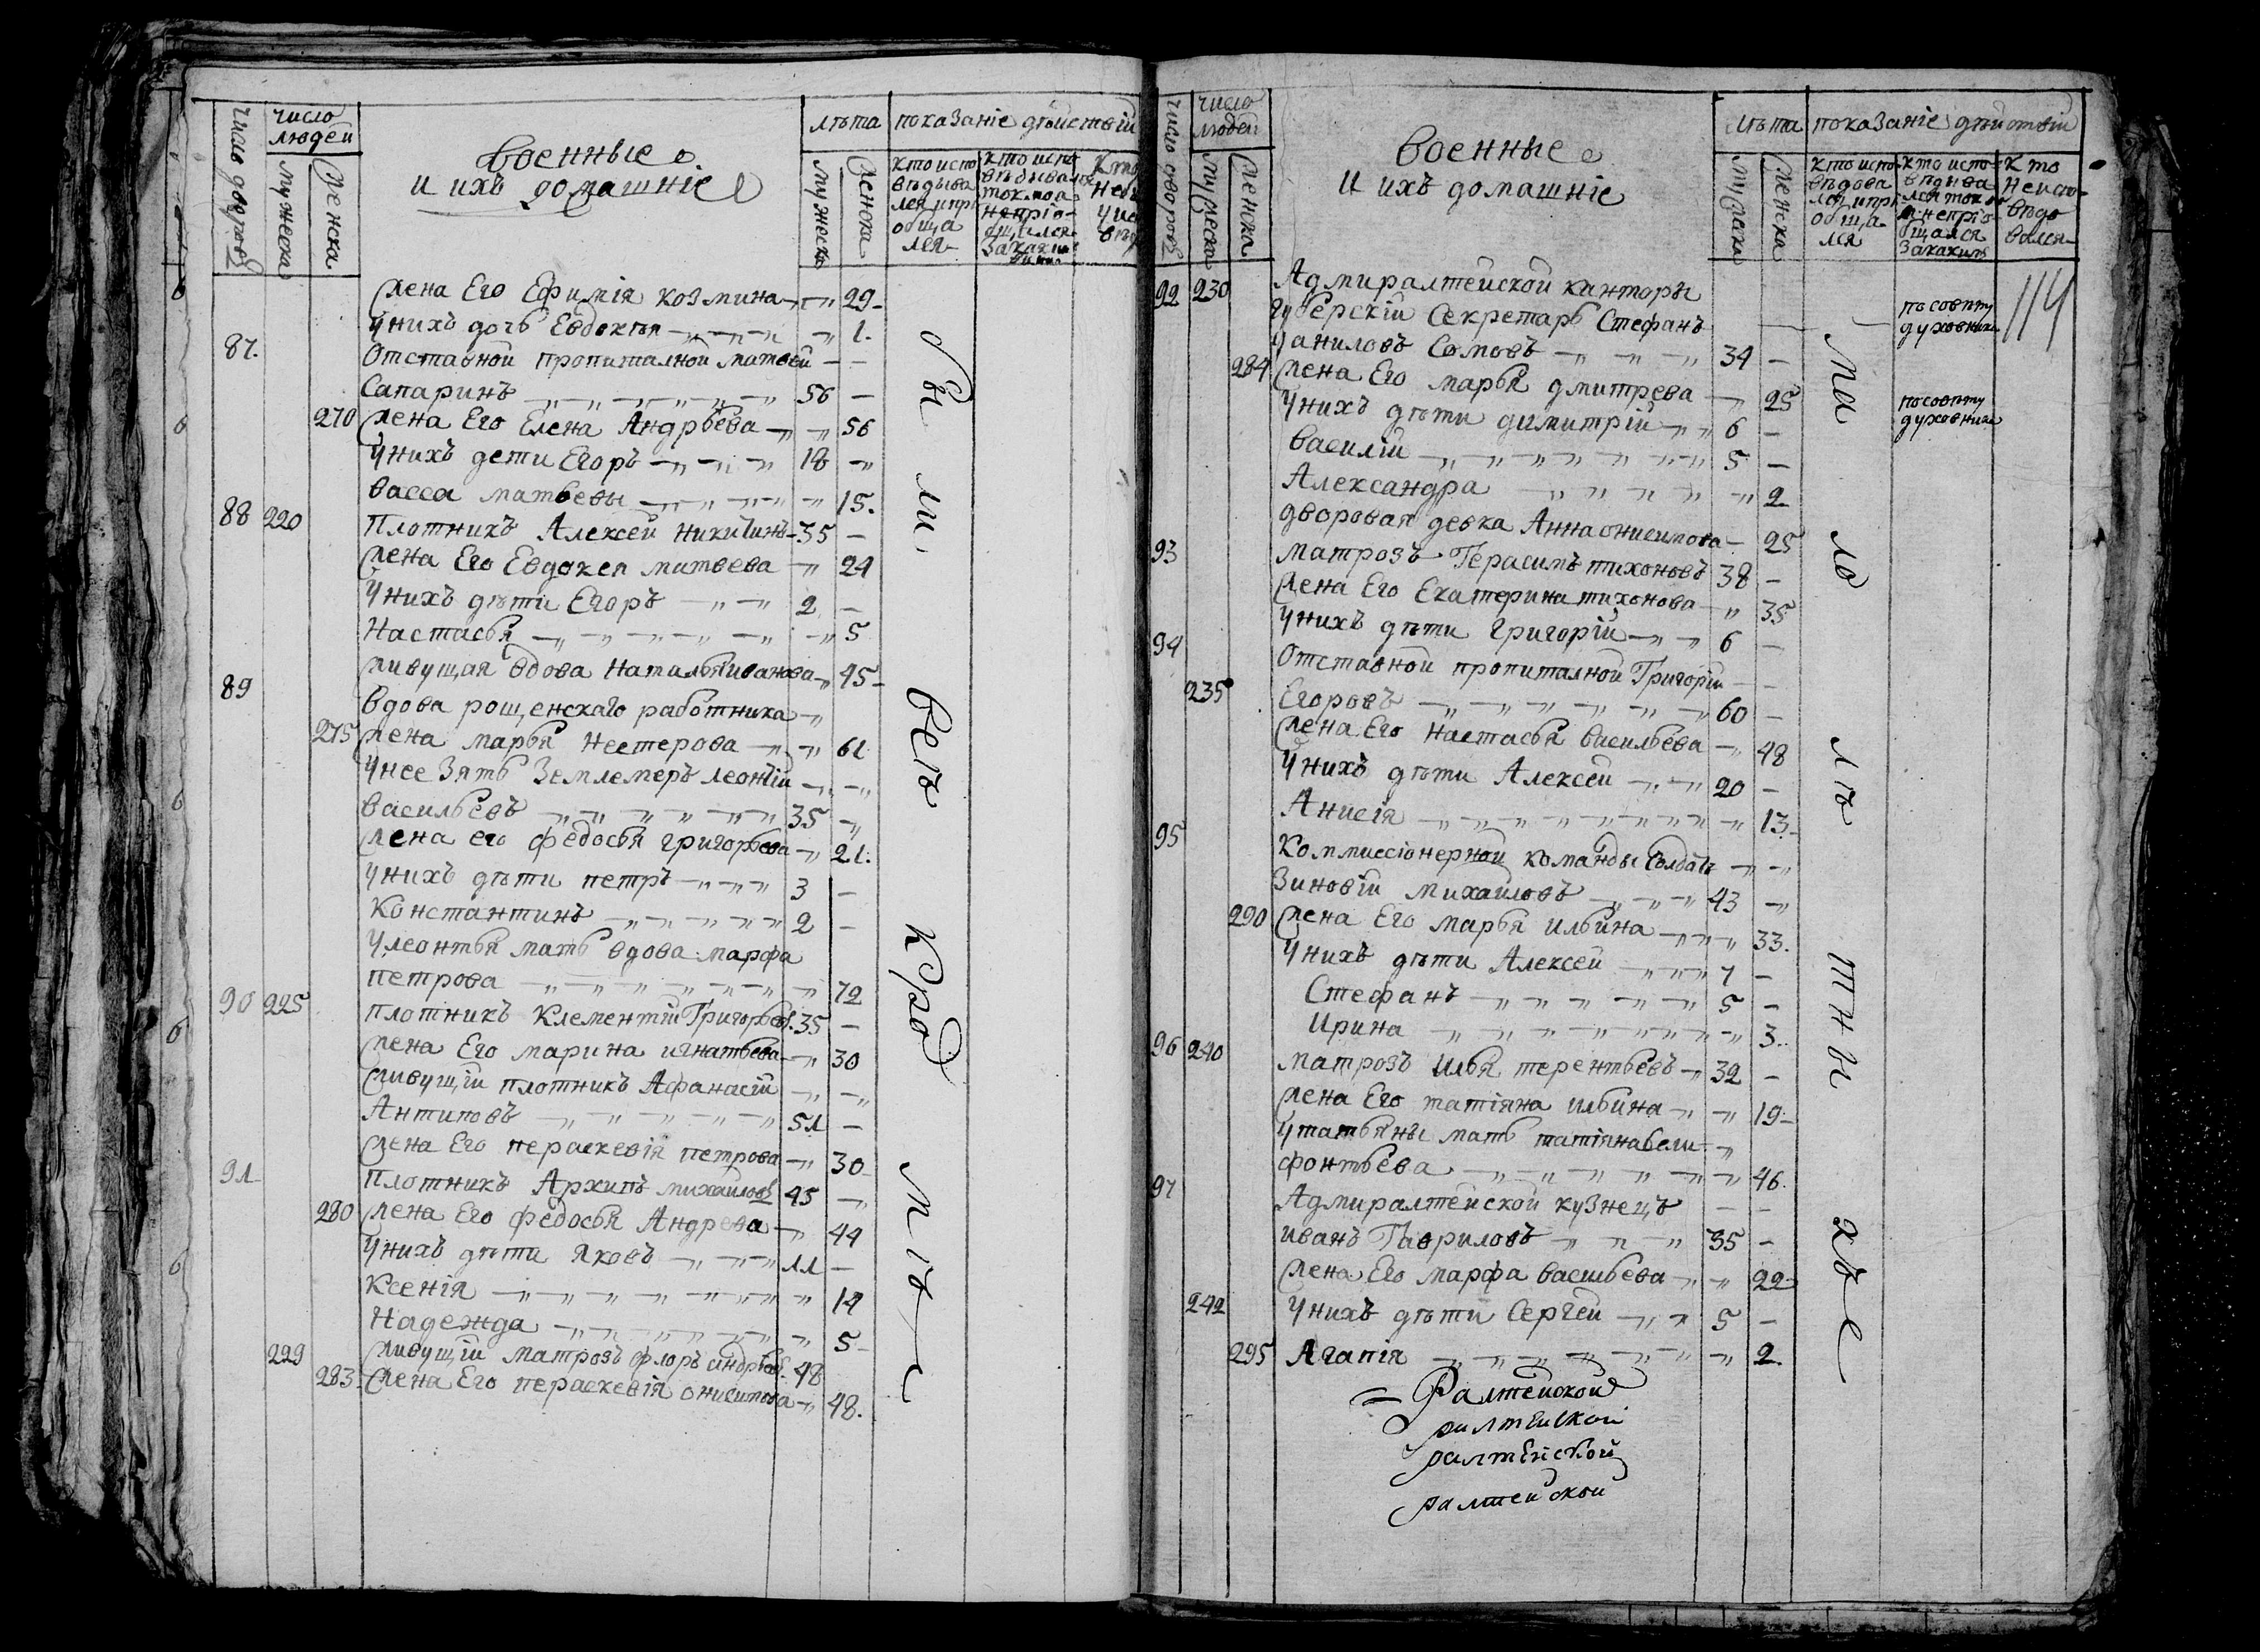 число дворовъ
число людей
мужеска
женска
военные
и ихъ домашніе
лѣта
мужеска
женска
показаніе дѣйствій
кто испо
вѣдыва
лся и прі
обща
лся
кто испо
вѣдывался
токмо а
непріо-
бщался
за какимъ
жена Его Ефимія козмина 29
у нихъ дочь Евдокѣя 1.
87. Отставной пропиталной матвей
Сапаринъ 56
270 жена Его Елена Андрѣева 56
у нихъ дети Егоръ 18
васса матвевы 15.
88 220 Плотникъ Алексей никитинъ 35
жена Его Евдокея матвева 24
у нихъ дѣти Егоръ 2
Настасья 5
живущая вдова наталья иванова 45
89 вдова рощенскаго работника
275 жена марья нестерова 61
у нее зять землемеръ леонтій
васильевъ 35
жена его федосья григорьева 21.
у нихъ дѣти петръ 3
Константинъ 2
у леонтья мать вдова марфа
петрова 72
90 225 плотникъ Клементій Григорьев. 35
жена Его марина игнатьева 30
живущій плотникъ Афанасій
Антиповъ 51
жена Его параскевія петрова 30
91 Плотникъ Архипъ михайловъ 45
280 жена Его федосья Андрева 44
у нихъ дѣти Яковъ 11
Ксенія 14
Надежда 5
229 живущій матрозъ флоръ андрѣев. 48
283. жена Его параскевія онисимова 48.
бы ли вел кро мѣ
число дворовъ
число людей
мужеска
женска
военные
и ихъ домашніе
лѣта
мужеска
женска
показаніе дѣйствій
кто испо
вѣдова
лся и прі
обща
лся
кто испо
вѣдыва
лся токмо
а непріо
бщался
за какимъ
кто
неиспо-
вѣдо
вался
114
92 230 Адмиралтейской канторы
губерскій Секретарь Стефанъ
Даниловъ Сомовъ 34
по совѣту
духовника
284 жена Его марья дмитрева 25
по совѣту
духовника
у нихъ дѣти димитрій 6
василій 5
Александра 2
дворовая девка Анна онисимова 25
93 матрозъ Герасимъ тихоновъ 38
жена Его Екатерина тихонова 35
у нихъ дѣти григорій 6
94 Отставной пропиталной Григорій
235 Егоровъ 60
жена Его настасья васильева 48
у нихъ дѣти Алексей 20
Анисія 13
95 Коммиссіонерной команды солдатъ
Зиновій михайловъ 43
290 жена Его марья ильина 33.
у нихъ дѣти Алексей 7
Стефанъ 5
Ирина 3.
96 240 матрозъ илья терентьевъ 32
жена Его татіяна ильина 19
у татьяны мать татіяна ксени-
фонтьева 46.
97 Адмиралтейской кузнецъ
иванъ Гавриловъ 35
жена Его марфа васильева 22
242 у нихъ дѣти Сергей 5
295 Агапія 2.
ма ло лѣ тны хъ
Ралтейской
ралтейской
ралтейской
ралтейской